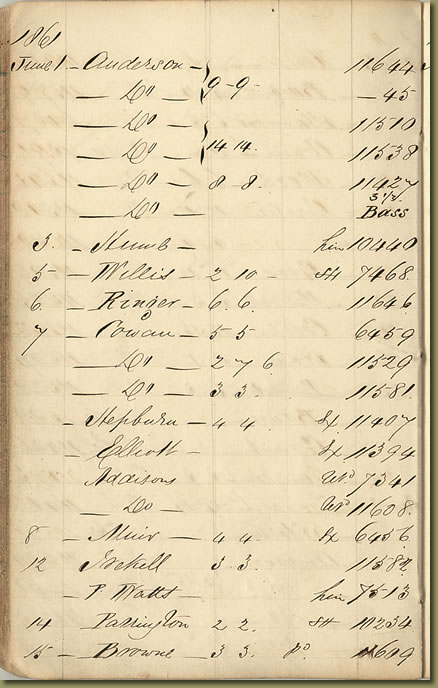 1861
June 1 - Anderson - 9-9- 11644
- Do - - 45
- Do 11510
- Do - 14 14. 11538
- Do - 8 - 8 - 11427
3 1/2.
- Do - Bass
3. - Humb - 10440
5 - Willis - 2 10 - SH 7468.
6. - Ringer - 6. 6. 11646
7 - Cowan - 5 5 6459
- Do - 2 7 6 11529
- Do - 3 3. 11581.
- Hepburn - 4 4 Ex 11407
- Elliott - Ex 11394
Addisons 7341
- Do - 11608.
8 - Muir - 4 4. Ex 6456
12 - 3. 3. 11582.
- P Watts - 7513
14 - Parrington 2 2. SH 10234
15 - Browne - 3 3. 11609